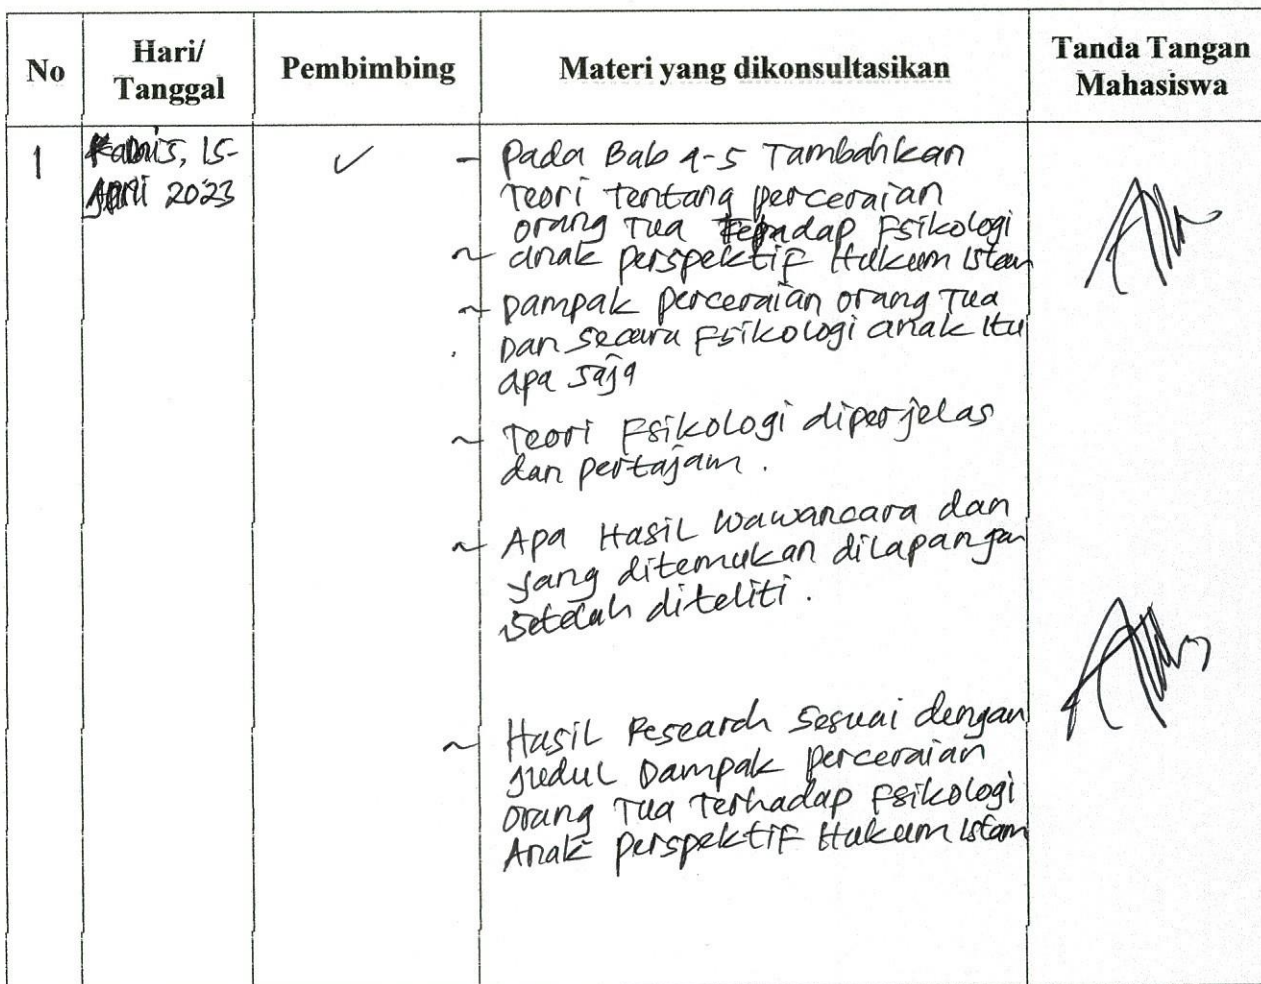 No
Hari/
Tanggal
Pembimbing
Materi yang dikonsultasikan
Tanda Tangan
Mahasiswa
1
Kamis, 15-
April 2023
✓
- Pada Bab 4-5 Tambahkan
Teori tentang perceraian
orang Tua Terhadap Fsikologi
~ anak perspektif Hukum Islam
~ Dampak perceraian orang Tua
Dan secara Fsikologi anak itu
apa saja
~ Teori Fsikologi diperjelas
dan pertajam.
~ Apa Hasil wawancara dan
yang ditemukan dilapangan
setelah diteliti.
~ Hasil Research sesuai dengan
judul Dampak perceraian
orang Tua Terhadap Fsikologi
Anak perspektif Hukum Islam